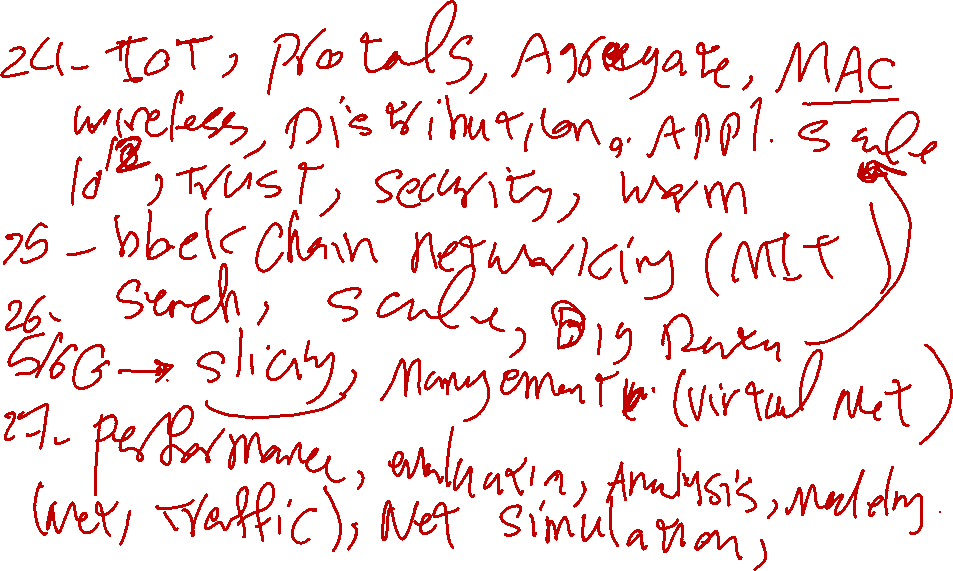 24- IoT, Protals, Agreegate, MAC
wireless, Distribution, Appl. scale
10^12, Trust, security, warm
25- bbck chain networking (MIT)
26- Serch, scale, Big Data
5/6G → slicing, Management (virtual Net)
27- performance, evaluation, Analysis, Modeling.
(Net, Traffic), Net simulation,